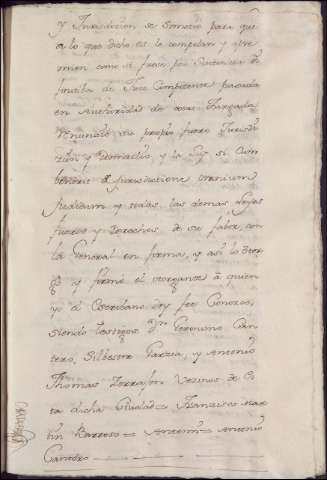 y Jurisdicion se somete para que
a lo que dicho es le compelan y apre
mien como si fuese por sentencia di
finitiba de Juez Competente pasada
en Authoridad de cosa Juzgada
Renunció su propio fuero Jurisdi
cion y Domicilio y la Ley si com
benerit de Jurisdictione omnium
Judicum y todas las demas Leyes
fueros y derechos de su fabor, con
la General en forma, y asi lo otor
gó y firmó el otorgante á quien
yo el Escribano doy fee Conozco,
siendo testigos Dn Geronimo Can
tero, Silbestre Garzia, y Antonio
Thomas Torrejon Vezinos de es
ta dicha Ciudad = Francisco Mar
tin Barroso = Antemi = Antonio
Cantero